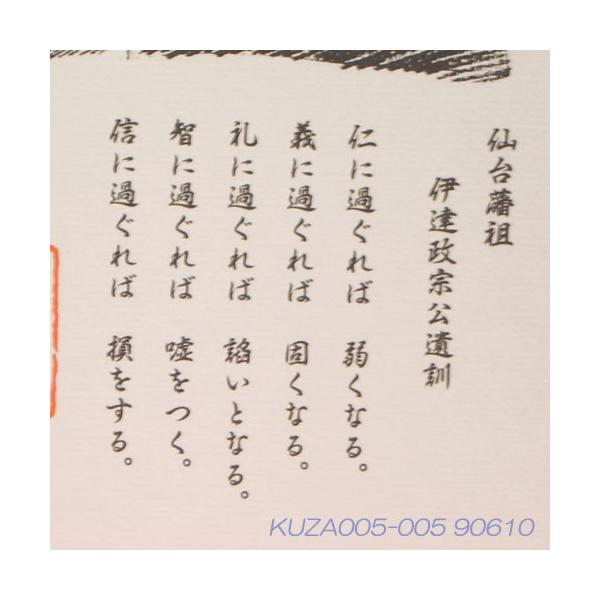 仙台藩祖
伊達政宗公遺訓
仁に過ぐれば 弱くなる。
義に過ぐれば 固くなる。
礼に過ぐれば 諂いとなる。
智に過ぐれば 嘘をつく。
信に過ぐれば 損をする。
KUZA005-005 90610